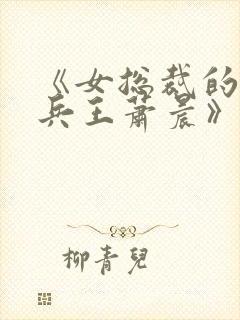 《女总裁的
兵王萧晨》
柳青兒